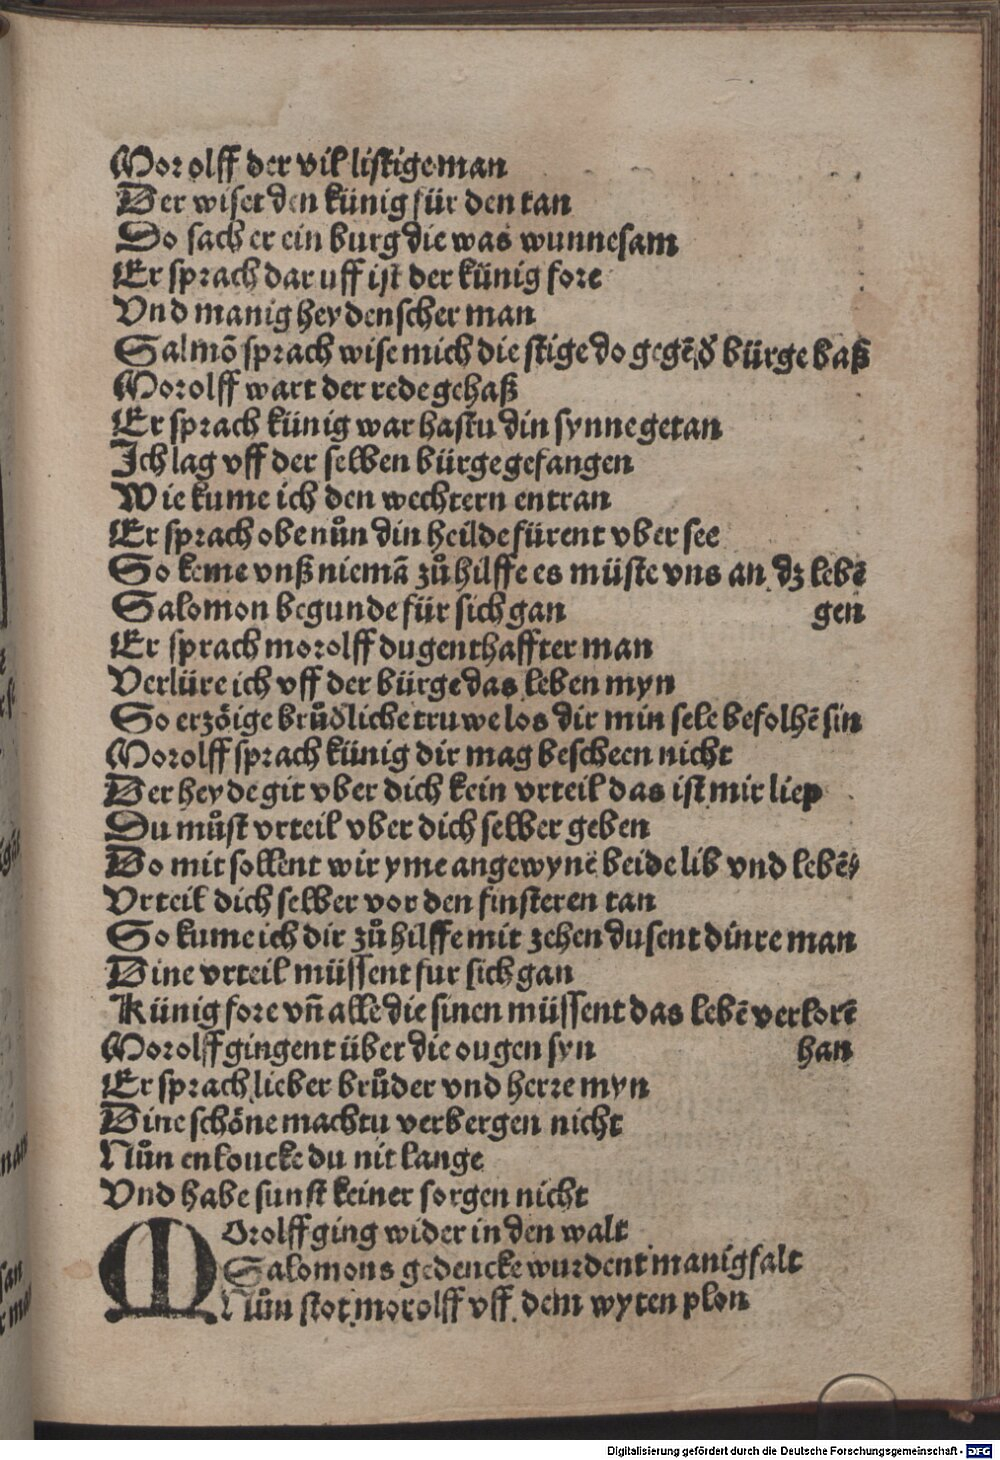 Morolff der vil listige man
Der wiset den künig für den tan
Do sach er ein burg die was wunnesam
Er sprach dar uff ist der künig fore
Vnd manig heydenscher man
Salmō sprach wise mich die stige do gegē d̄ bürge baß
Morolff wart der rede gehaß
Er sprach künig war hastu din synne getan
Ich lag vff der selben bürge gefangen
Wie kume ich den wechtern entran
Er sprach obe nůn din heilde fürent vber see
So keme vnß niemā zů hilffe es müste vns an dz lebē
Salomon begunde für sich gan gen
Er sprach morolff dugenthaffter man
Verlüre ich vff der bürge das leben myn
So erzöige brůdliche truwe los dir min sele befolhē sin
Morolff sprach künig dir mag bescheen nicht
Der heyde git vber dich kein vrteil das ist mir liep
Du můst vrteil vber dich selber geben
Do mit sollent wir yme angewynē beide lib vnd lebē
Vrteil dich selber vor den finsteren tan
So kume ich dir zů hilffe mit zehen dusent dinre man
Dine vrteil müssent fur sich gan
Künig fore vn̄ alle die sinen müssent das lebē verlorē
Morolff gingent über die ougen syn han
Er sprach lieber brůder vnd herre myn
Dine schöne machtu verbergen nicht
Nůn enloucke du nit lange
Vnd habe sunst keiner sorgen nicht
Morolff ging wider in den walt
Salomons gedencke wurdent manigfalt
Nůn stot morolff vff dem wyten plon
Digitalisierung gefördert durch die Deutsche Forschungsgemeinschaft - DFG